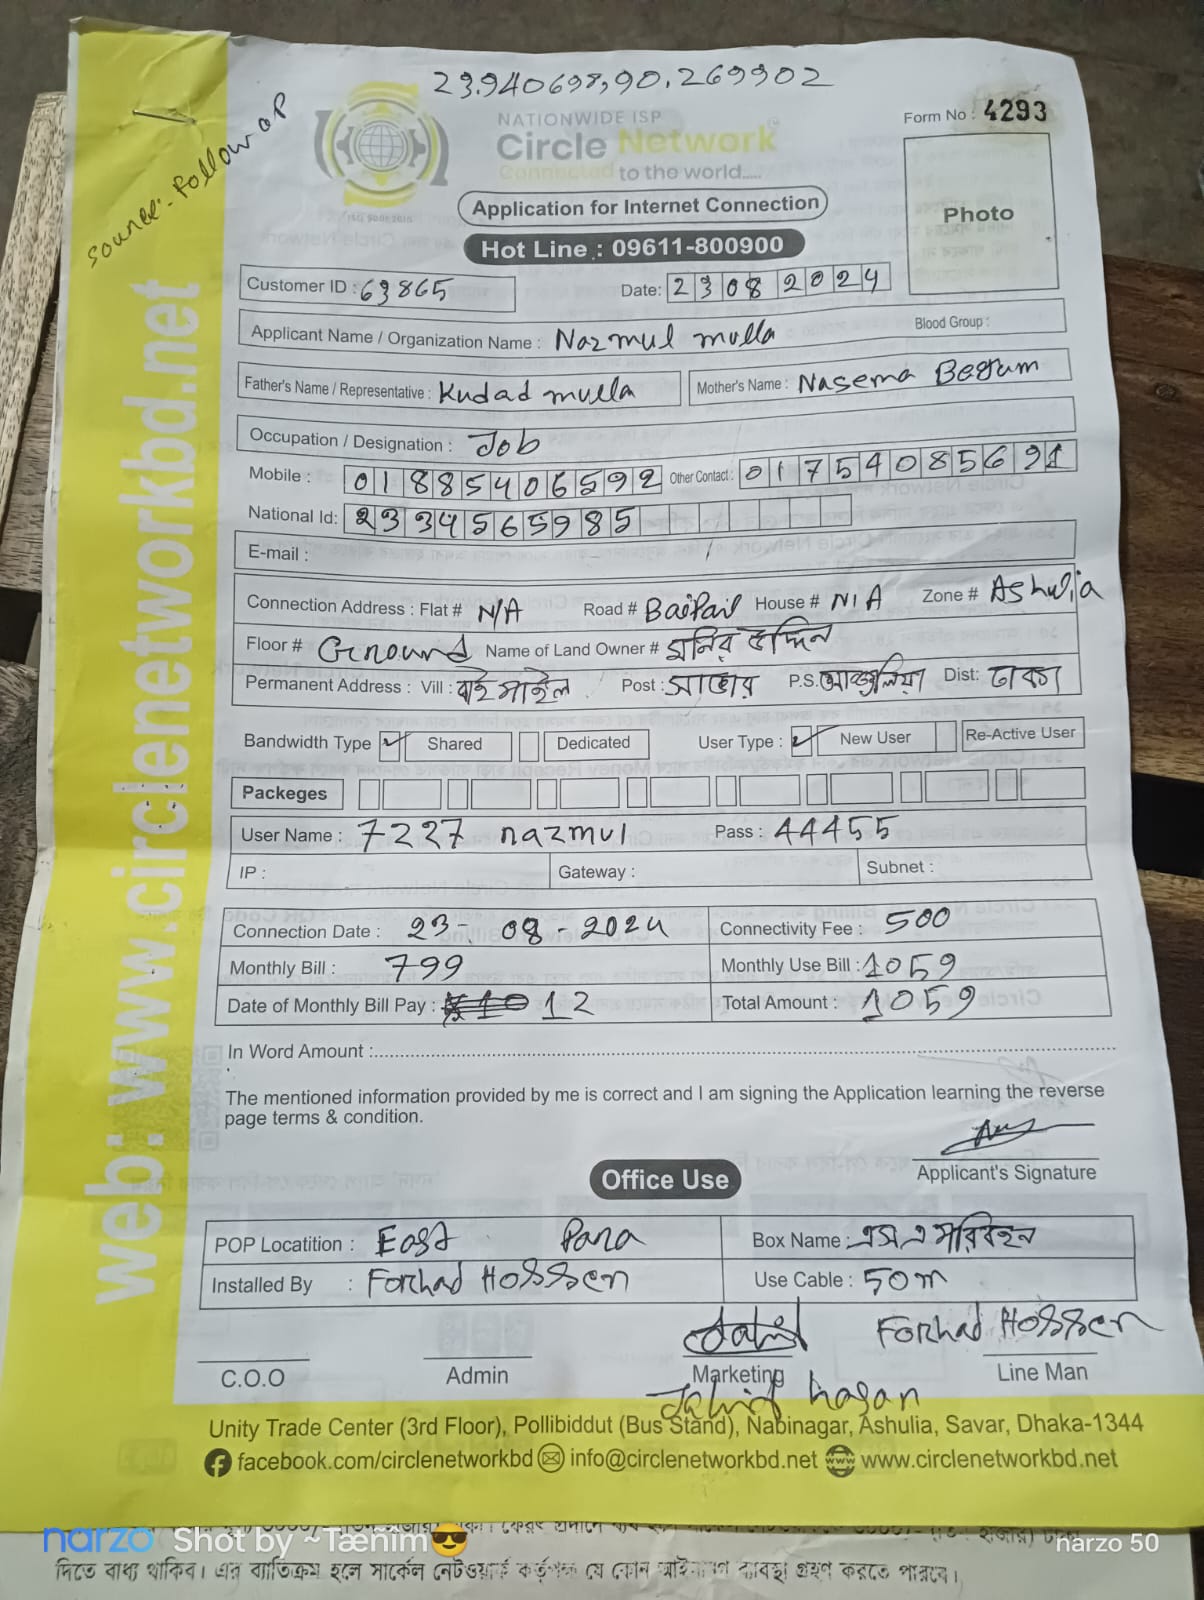 23.940698,90.269902
Source:- Follow up
NATIONWIDE ISP
Circle Network
Connected to the world.....
ISO 9001:2015
Form No : 4293
Photo
Application for Internet Connection
Hot Line : 09611-800900
Customer ID : 63865
Date: 23 08 2024
Applicant Name / Organization Name : Nazmul mulla
Blood Group :
Father's Name / Representative : Kudad mulla
Mother's Name : Nasema Begum
Occupation / Designation : Job
Mobile : 01885406592 Other Contact : 01754085691
National Id: 2334565985
E-mail :
Connection Address : Flat # N/A Road # Baipail House # N/A Zone # Ashulia
Floor # Ground Name of Land Owner # মনির উদ্দিন
Permanent Address : Vill : বাইপাইল Post : সাভার P.S. আশুলিয়া Dist: ঢাকা
Bandwidth Type ✓ Shared Dedicated User Type : ✓ New User Re-Active User
Packeges
User Name : 7227 nazmul Pass : 44455
IP : Gateway : Subnet :
Connection Date : 23 - 08 - 2024 Connectivity Fee : 500
Monthly Bill : 799 Monthly Use Bill : 1059
Date of Monthly Bill Pay : 12 Total Amount : 1059
In Word Amount :
The mentioned information provided by me is correct and I am signing the Application learning the reverse
page terms & condition.
Applicant's Signature
Office Use
POP Locatition : East Para Box Name : এস এ পরিবহন
Installed By : Forhad Hossen Use Cable : 50m
Forhad Hossen
C.O.O Admin Marketing Line Man
Jahid hasan
Unity Trade Center (3rd Floor), Pollibiddut (Bus Stand), Nabinagar, Ashulia, Savar, Dhaka-1344
facebook.com/circlenetworkbd info@circlenetworkbd.net www.circlenetworkbd.net
web: www.circlenetworkbd.net
narzo Shot by ~Tæñim😎 narzo 50
দিতে বাধ্য থাকিব। এর ব্যতিক্রম হলে সার্কেল নেটওয়ার্ক কর্তৃপক্ষ যে কোন আইনানুগ ব্যবস্থা গ্রহণ করতে পারবে।